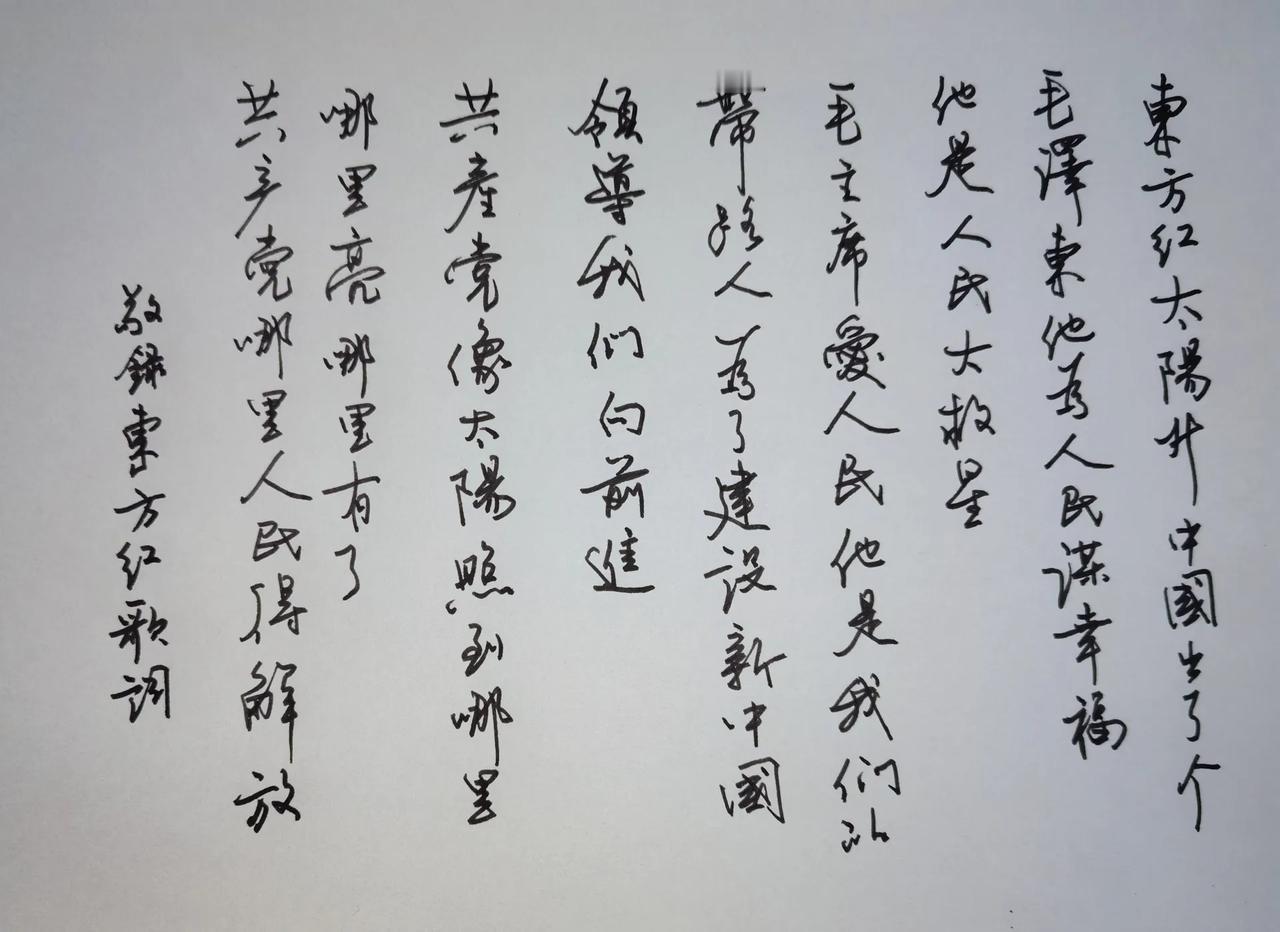 東方红太陽升中國出了个
毛澤東他为人民谋幸福
他是人民大救星
毛主席愛人民他是我们的
帶路人为了建设新中國
領導我们向前進
共產党像太陽照到哪里
哪里亮哪里有了
共产党哪里人民得解放
敬録東方红歌词